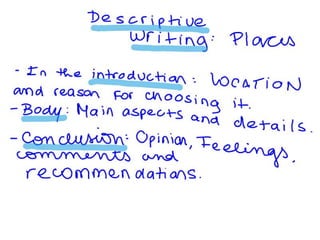 Descriptive
Writing: Places
- In the introduction: LOCATION
and reason for choosing it.
- Body: Main aspects and details.
- Conclusion: Opinion, Feelings,
comments and
recommendations.